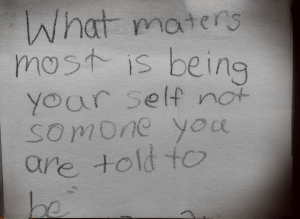 What maters
most is being
your self not
somone you
are told to
be"